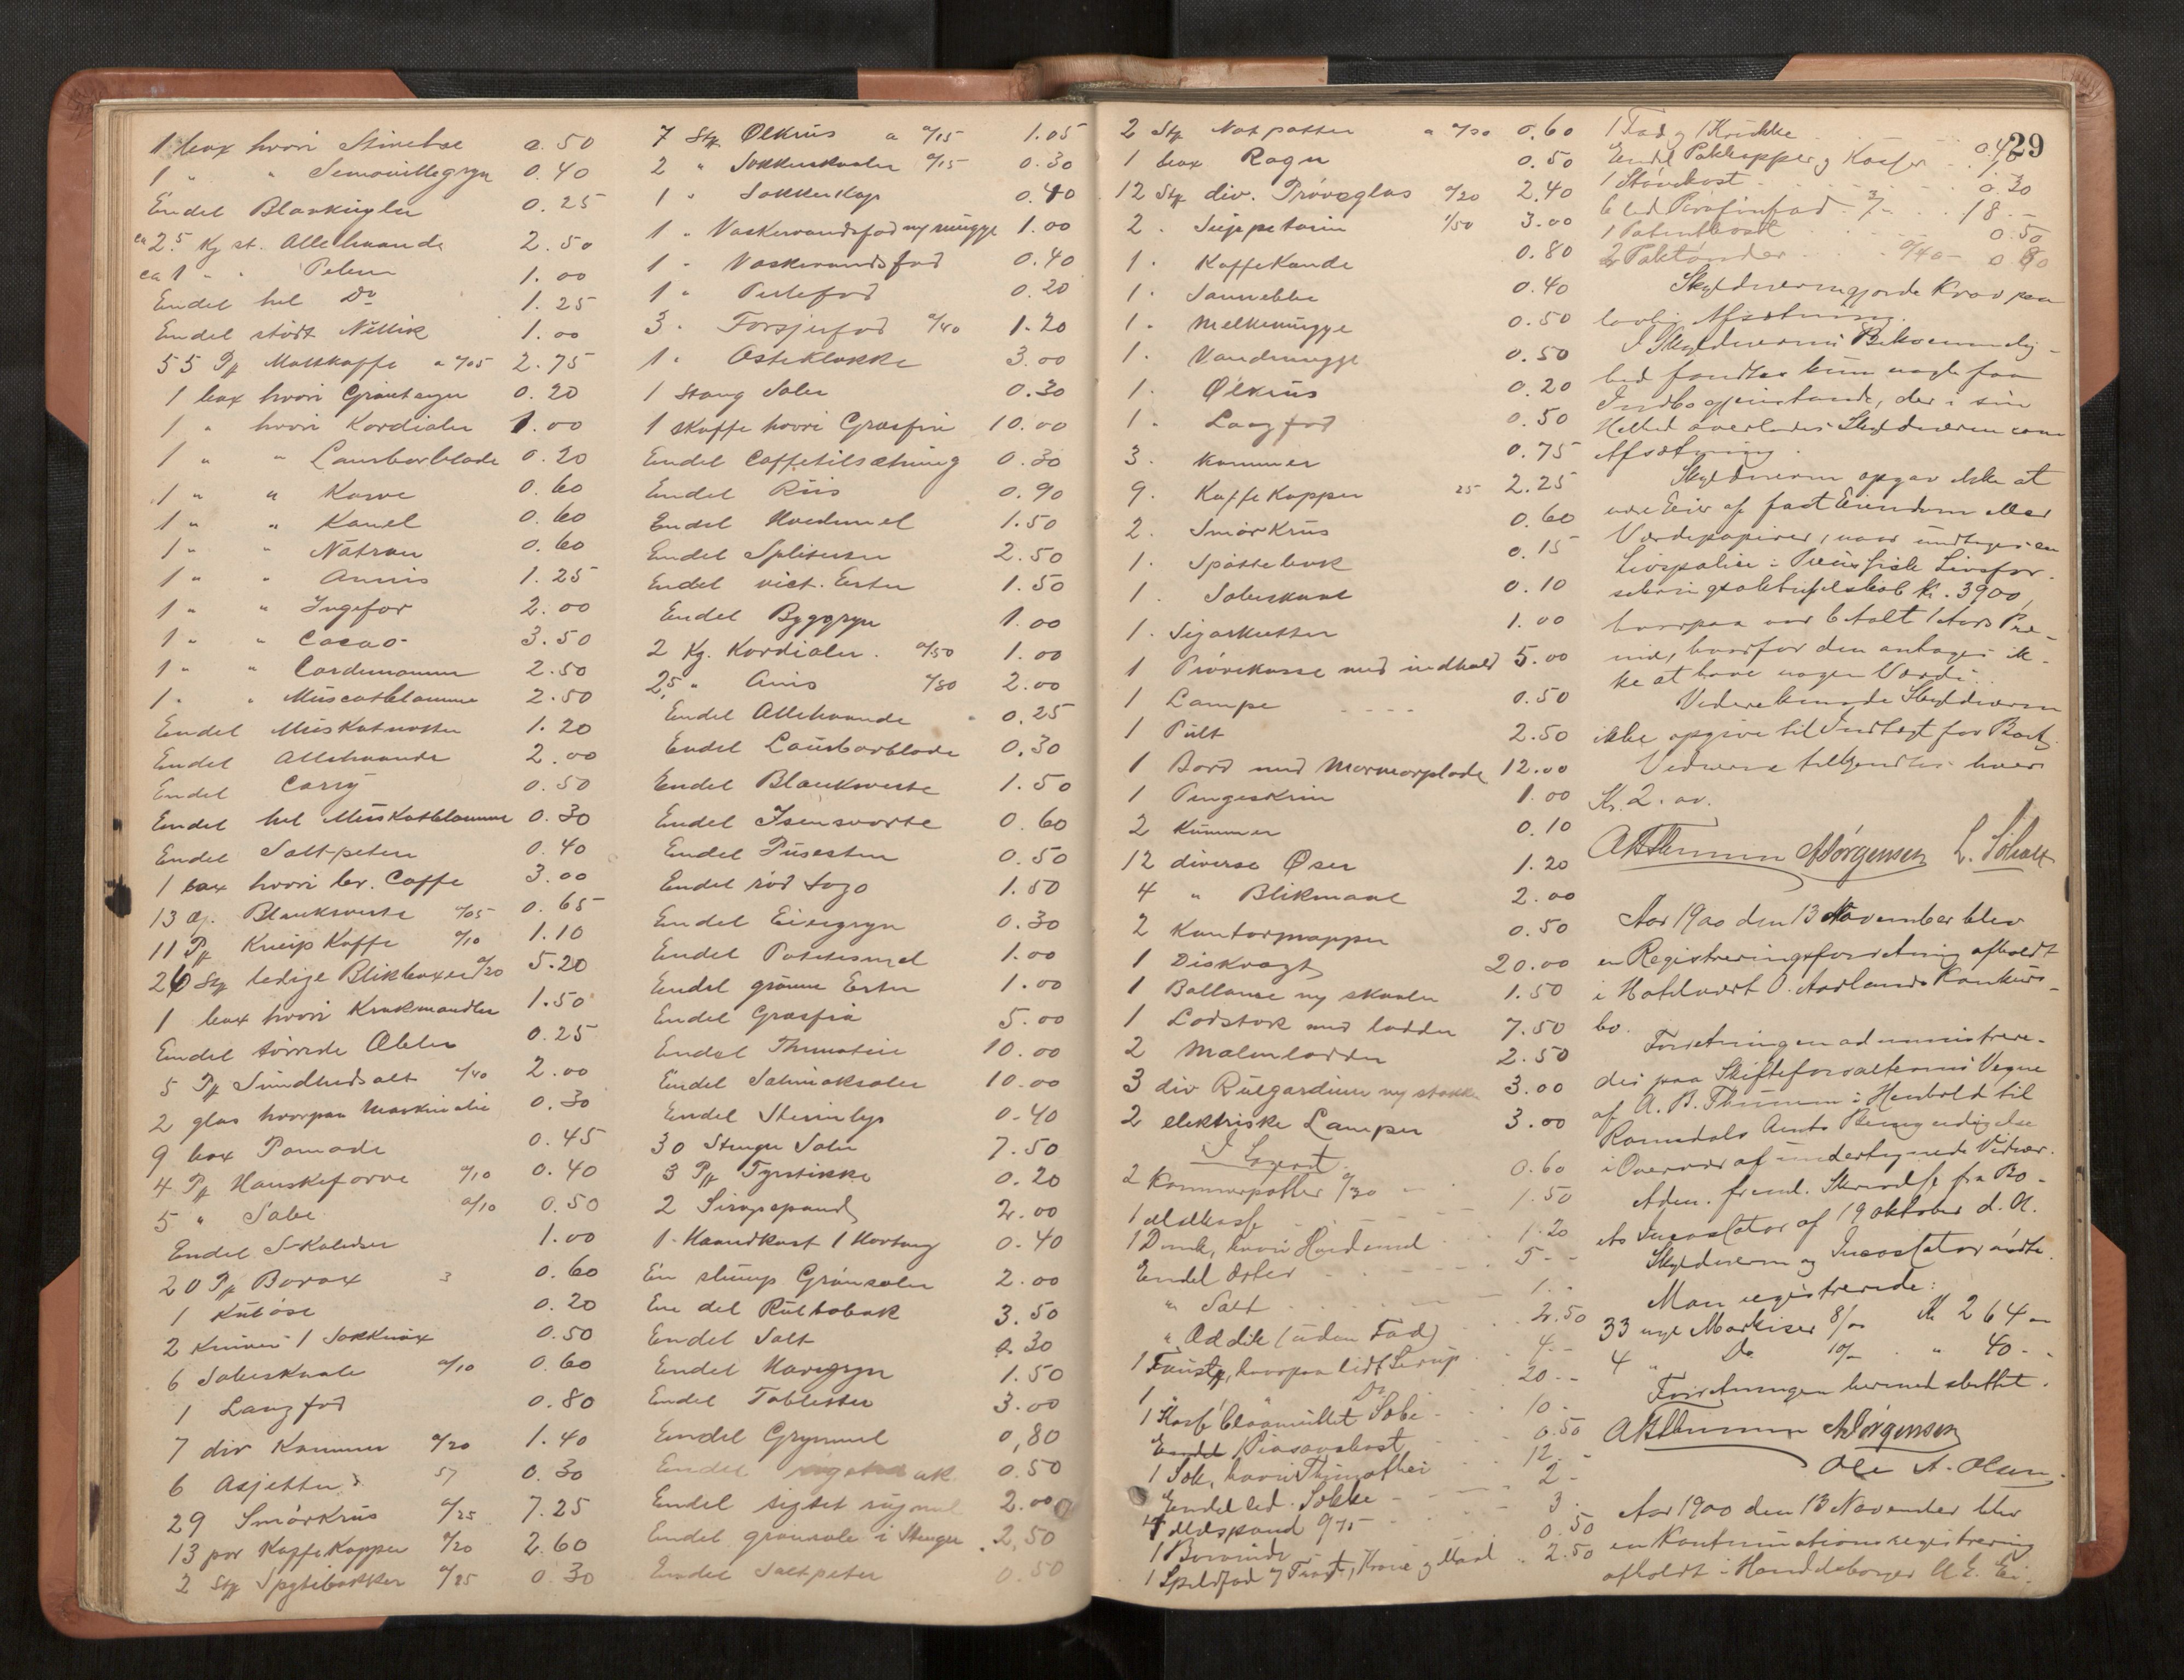 1 box hvori Stivelse 0.50
1 " " Semouillegryn 0.40
Endel Blaakugler 0.25
ca 2.5 Kg st. Allehaande 2.50
ca 1 " " Peber 1.00
Endel hel Do 1.25
Endel stødt Nellik 1.00
55 Pk Maltkaffe a 0/05 2.75
1 box hvori 0.20
1 " hvori Kordialer 1.00
1 " " Laurbærblade 0.20
1 " " Karve 0.60
1 " " Kanel 0.60
1 " " Natron 0.60
1 " " Annis 1.25
1 " " Ingefær 2.00
1 " " Cacao 3.50
1 " " Cardemomme 2.50
1 " " Muscatblomme 2.50
Endel Muskatnøtter 1.20
Endel Allehaande 2.00
Endel Carry 0.50
Endel hel Muskatblomme 0.30
Endel Salt-peter 0.40
1 box hvori br. Caffe 3.00
13 Blanksværte 0/05 0.65
11 Pk Kneip Kaffe 0/10 1.10
26 Stk ledige Blikboxer 0/20 5.20
1 box hvori Krakmandler 1.50
Endel tørrede Æbler 0.25
5 Pk Sundhedsalt 0/40 2.00
2 glas hvorpaa Maskinolie 0.30
9 box Pomade 0.45
4 Pk Hanskefarve 0/10 0.40
5 " Sæbe 0/10 0.50
Endel 1.00
20 Pk Borax 3 0.60
1 0.20
2 Kniver 1 0.50
6 Sæbeskaale 0/10 0.60
1 Langfad 0.80
7 div Kummer 0/20 1.40
6 Asjetter 5/ 0.30
29 Smørkrus 0/25 7.25
13 par Kaffekopper 0/20 2.60
2 Stk Spyttebakker 0/25 0.30
7 Stk Ølkrus a 0/15 1.05
2 " Sukkerskaaler 0/15 0.30
1 " Sukkerkop 0.40
1 " Vaskevandsfad og mugge 1.00
1 " Vaskevandsfad 0.40
1 " 0.20
3 " 0/40 1.20
1 " Osteklokke 3.00
1 Stang Sæbe 0.30
1 skuffe hvori Grøsfrin 10.00
Endel Caffetilsætning 0.30
Endel Riis 0.90
Endel Hvedemel 1.50
Endel Spliterter 2.50
Endel vict. Erter 1.50
Endel Byggryn 1.00
2 Kg. Kordialer 0/50 1.00
2,5 " Anis 0/80 2.00
Endel Allehaande 0.25
Endel Laurbærblade 0.30
Endel Blanksværte 1.50
Endel Isensværte 0.60
Endel 0.50
Endel rød Sago 1.50
Endel 0.30
Endel Potetesmel 1.00
Endel grønne Erter 1.00
Endel Grøsfrin 5.00
Endel Thimothei 10.00
Endel Salmiaksæber 10.00
Endel Sterinlys 0.40
30 Stenger Sæbe 7.50
3 Pk Fyrstikke 0.20
2 Sirupspand 2.00
1 Haandkost 1 0.40
En slump Grønsæbe 2.00
En del Rultobak 3.50
Endel Salt 0.30
Endel Havregryn 1.50
Endel Tobletter 3.00
Endel Grynmel 0,80
Endel 0.50
Endel sigtet rugmel 2.00
Endel grønsæbe i Stenger 2,50
Endel Saltpeter 0.50
2 Stk Natpotter a 0/30 0.60
1 box Rogn 0.50
12 Stk div. Prøveglas 0/20 2.40
2 " Suppeterin 1/50 3.00
1 " Kaffekande 0.80
1 " 0.40
1 " Melkemugge 0.50
1 " Vandmugge 0.50
1 " Ølkrus 0.20
1 " Langfad 0.50
3 " Kummer 0.75
9 " Kaffekopper 25 2.25
2 " Smørkrus 0.60
1 " 0.15
1 " Sæbeskaal 0.10
1 " Sigarkutter 1.00
1 Prøvekasse med indhold 5.00
1 Lampe 0.50
1 Pult 2.50
1 Bord med Marmorplade 12.00
1 Pengeskrin 1.00
2 Kummer 0.10
12 diverse Øser 1.20
4 " Blikmaal 2.00
2 Kontormapper 0.50
1 Diskvægt 20.00
1 Ballanse og skaaler 1.50
1 Lodstok med lodder 7.50
2 Malmlodder 2.50
3 div Rulgardiner og stokke 3.00
2 elektriske Lamper 3.00
2 Kammerpotter 0/30 0.60
1 1.50
1 Dunk, hvori 1.20
Endel Erter 5 -
" Salt 1. -
" Eddik (uden Fad) 2.50
1 Fustg, hvorpaa lidt Sirup 4 -
1 " Do 20 -
1 Kasse Sæbe 10 -
1 Piasavakost 0.50
1 Sæk, hvori Thimothei 12 -
Endel led. Sække 2 -
4 3 -
1 0.50
1 2.50
29
1 Fad og 1 Krukke 0.40
Endel Pakkopper og Kasser 1.
1 Støvekost 0.30
6 led Parafinfad 3/- 18 -
1 Patentkost 0.50
2 Paktønder 0/40 - 0 80
Skyldneren gjorde Krav paa
lovlig Afsætning.
I Skyldnerens Bekvemmelig-
hed fandtes kun nogle faa
Indbogjenstande, der i sin
Helhed overlodes Skyldneren som
Afsætning.
Skyldneren opgav ikke at
være Eier af fast Eiendom eller
Værdipapirer, naar undtages en
Livspolice i Preussiske Livsfor-
sikringsaktieselskab Kr. 3900,
hvorpaa var betalt 1 Aars Præ-
mie, hvorfor den antages ik-
ke at have nogen Værdi.
Videre kunde Skyldneren
ikke opgive til Indtægt for Boet.
Vidnerne tilkjendtes hver
Kr. 2. ov.
A B Thumm A Jørgensen L. Scholtz
Aar 1900 den 13 November blev
en Registreringsforretning afholdt
i Hotelvært O. Aarlands Konkurs-
bo.
Forretningen administrere-
des paa Skifteforvalterens Vegne
af A. B. Thumm i Henhold til
Romsdals Amts Bemyndigelse
i Overvær af undertegnede Vidner.
Adm. freml. Skrivelse fra Bo-
ets Incassator af 19 oktober d. A.
Skyldneren og Incassator mødte.
Man registrerede:
33 nye Markiser 8/00 Kr 264 00
4 " Do 10/- " 40 -
Forretningen hermed sluttet.
A B Thumm A Jørgensen
Ole A. Olsen.
Aar 1900 den 13 November blev
en Kontinuationsregistrering
afholdt i Handelsborger A. E. Ei-